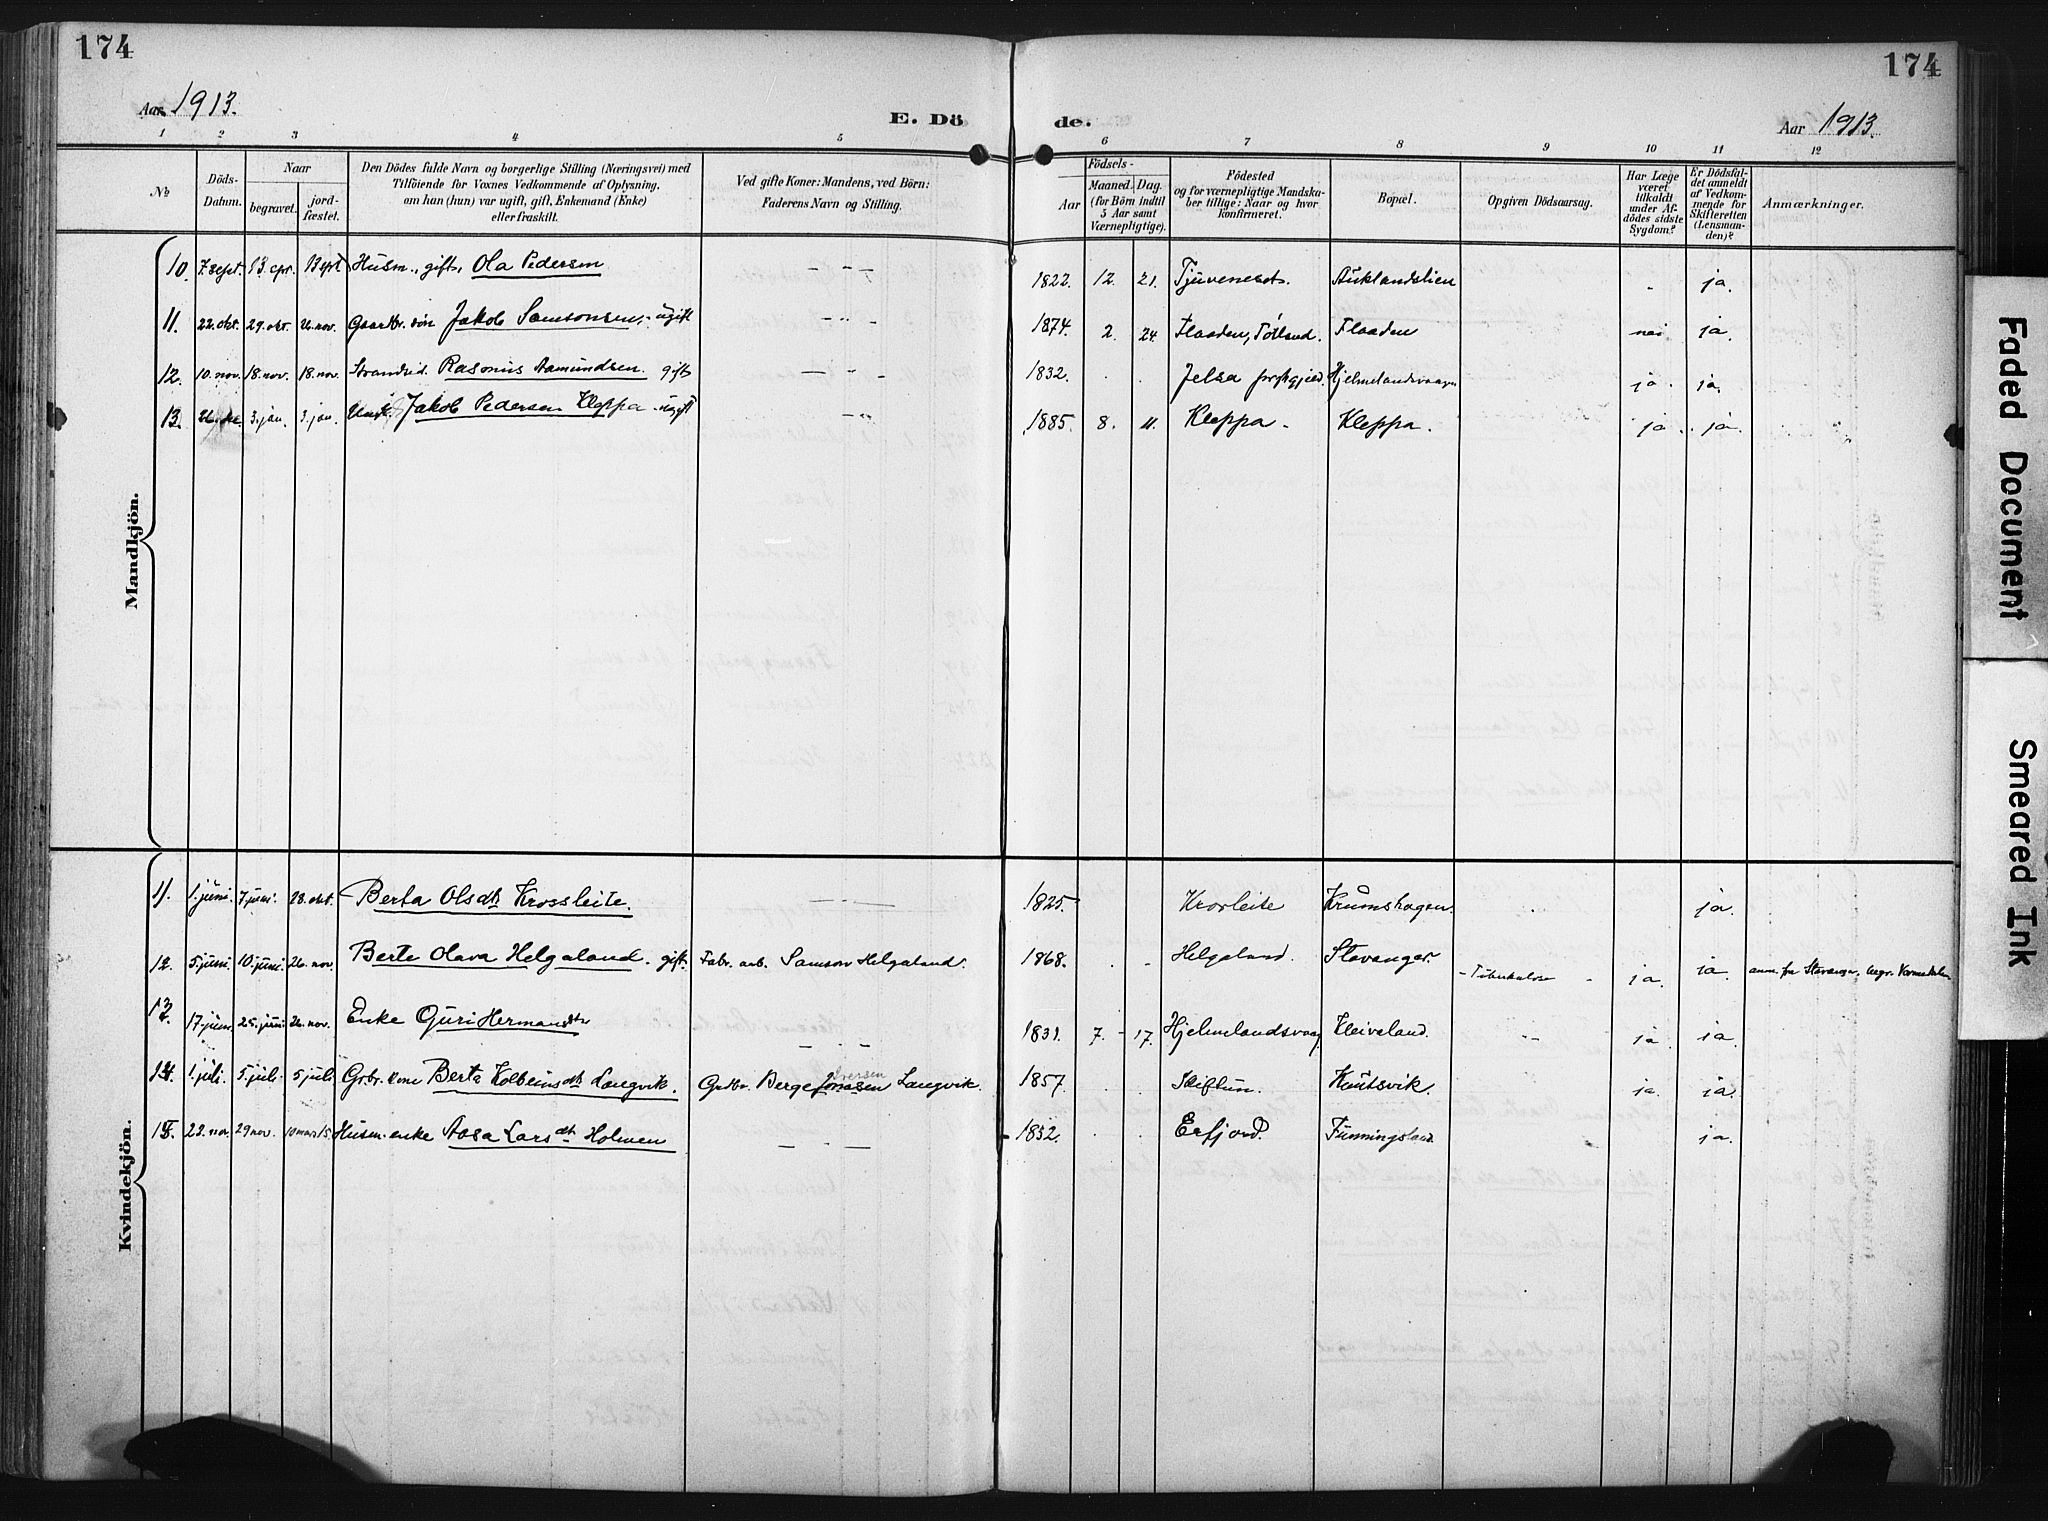 174
174
Aar 1913.
E. Dö
de.
Aar 1913.
1 2 3 4 5 6 7 8 9 10 11 12
No
Döds-Datum.
Naar
begravet.
jord-fæstet.
Den Dödes fulde Navn og borgerlige Stilling (Næringsvei) med
Tilföiende for Voxnes Vedkommende af Oplysning,
om han (hun) var ugift, gift, Enkemand (Enke)
eller fraskilt.
Ved gifte Koner: Mandens, ved Börn:
Faderens Navn og Stilling.
Födsels-
Aar
Maaned. Dag.
(for Börn indtil
5 Aar samt
Værnepligtige).
Födested
og for værnepligtige Mandska-
ber tillige: Naar og hvor
konfirmeret.
Bopæl.
Opgiven Dödsaarsag.
Har Læge
været
tilkaldt
under Af-
dödes sidste
Sygdom?
Er Dödsfal-
det anmeldt
af Vedkom-
mende for
Skifteretten
(Lensman-
den)?
Anmærkninger.
Mandkjön.
10. 7. sept. 13. spt. 13 spt Husm., gift, Ola Pedersen 1822. 12. 21. Tjuvenest. Auklandslien ja.
11. 22. okt. 29. okt. 26. nov. Gaardbr. sön Jakob Samsonsen, ugift 1874. 2. 24. Flaaden, Tötland. Flaaden nei ja.
12. 10. nov. 18. nov. 18. nov. Strandsid. Rasmus Aamundsen gift 1832. Jelsa prestegjeld. Hjelmelandsvaagen ja. ja.
13. 3. jan. 3. jan. Jakob Pedersen Kleppa ugift 1885. 8. 11. Kleppa. Kleppa. ja ja.
Kvindekjön.
11. 1. juni. 7. juni. 28. okt. Berta Olsdtr Krossleite. 1825. Krosleite Krumshagen. ja.
12. 5. juni. 10. juni. 26. nov. Berte Olava Helgaland. gift. Fabr. arb. Samson Helgaland. 1868. Helgaland. Stavanger. Tuberkulose ja. ja. anm. fra Stavanger, begr. Vormedalen
13. 17. juni. 25. juni 26. nov. Enke Guri Hermansdtr 1831. 7. 17. Hjelmelandsvaag Kleiveland. ja. ja.
14. 1. juli. 5 juli. 5 juli Grbr. kone Berta Kolbeinsdtr Langvik. Grdbr. Berge Jonasen Langvik. Iversen 1857. Skiftun. Knutsvik. ja. ja.
15. 22. nov. 29 nov. 10 mars 15. Husm. enke Aasa Larsdtr Holmen 1832. Erfjord. Funningsland. ja.
Faded Document
Smeared Ink